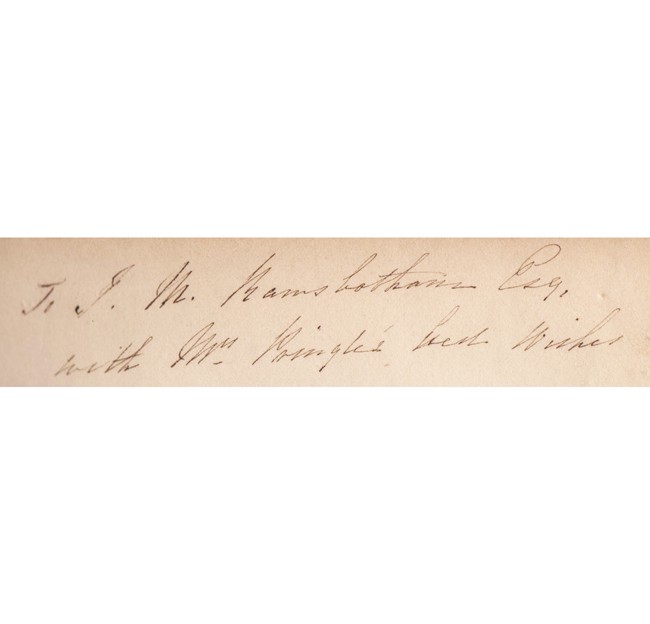 To J. M. Ramsbotham Esq.
with Mrs Pringle's best Wishes